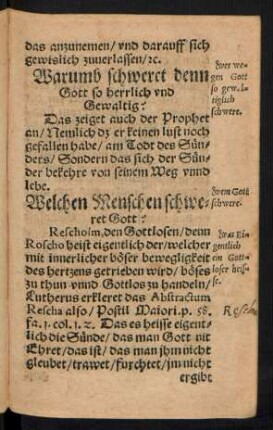 das anzunemen/ vnd darauff sich
gewislich zuuerlassen/ ꝛc.
Warumb schweret denn
Gott so herrlich vnd
Gewaltig?
Das zeiget auch der Prophet
an/ Nemlich dz er keinen lust noch
gefallen habe/ am Todt des Sün-
ders/ Sondern das sich der Sün-
der bekehre von seinem Weg vnnd
lebe.
Welchen Menschen schwe-
ret Gott?
Reschoim, den Gottlosen/ denn
Roscho heist eigentlich der/ welcher
mit innerlicher böser bewegligkeit
des hertzens getrieben wird/ böses
zu thun vnnd Gottlos zu handeln/
Lutherus erkleret das Abstractum
Rescha also/ Postil Maiori. p. 58.
fa. 1. col. 1. 2. Das es heisse eigent-
lich die Sünde/ das man Gott nit
Ehret/ das ist/ das man jhm nicht
gleubet/ trawet/ fürchtet/ jm nicht
ergibt
wer we-
gen Gott
so gewal-
tiglich
schwere.
wem Gott
schwere.
was Ei-
gentlich
ein Gott-
loser heis-
se.